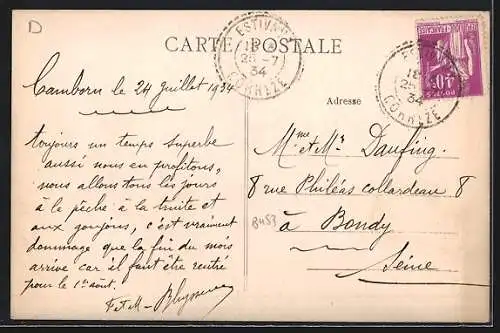 D
CARTE POSTALE
ESTIVAUX
18
25-7
34
CORRÈZE
Camborn le 24 Juillet 1934
toujours un temps superbe
aussi nous en profitons,
nous allons tous les jours
à la pêche à la truite et
aux goujons, c'est vraiment
dommage que la fin du mois
arrive car il faut être rentré
pour le 1er août.
F et M
Adresse
Mme et Mr Daufing.
8 rue Philéas collardeau 8
à Bondy
Seine
B453
18
25
34
CORRÈZE